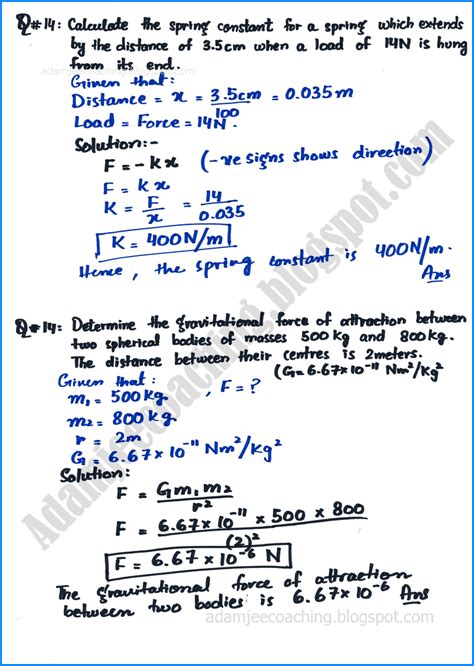 Q#14: Calculate the spring constant for a spring which extends
by the distance of 3.5cm when a load of 14N is hung
from its end.
adamjeecoaching.blogspot.com
Given that:
Distance = x = 3.5cm/100 = 0.035m
Load = Force = 14N.
Solution:-
F = -kx (-ve signs shows direction)
F = kx
K = F/x = 14/0.035
K = 400N/m
Hence, the spring constant is 400N/m.
Ans
Q#14: Determine the gravitational force of attraction between
two spherical bodies of masses 500kg and 800kg.
The distance between their centres is 2meters.
(G = 6.67×10⁻¹¹ Nm²/Kg²
Given that:
m₁ = 500kg, F = ?
m₂ = 800kg
r = 2m
G = 6.67×10⁻¹¹ Nm²/Kg²
Solution:
F = Gm₁m₂/r²
F = 6.67×10⁻¹¹ × 500 × 800/(2)²
F = 6.67×10⁻⁶ N
The gravitational force of attraction
between two bodies is 6.67×10⁻⁶ Ans
adamjeecoaching.blogspot.com
Adamjeecoaching.blogspot.com